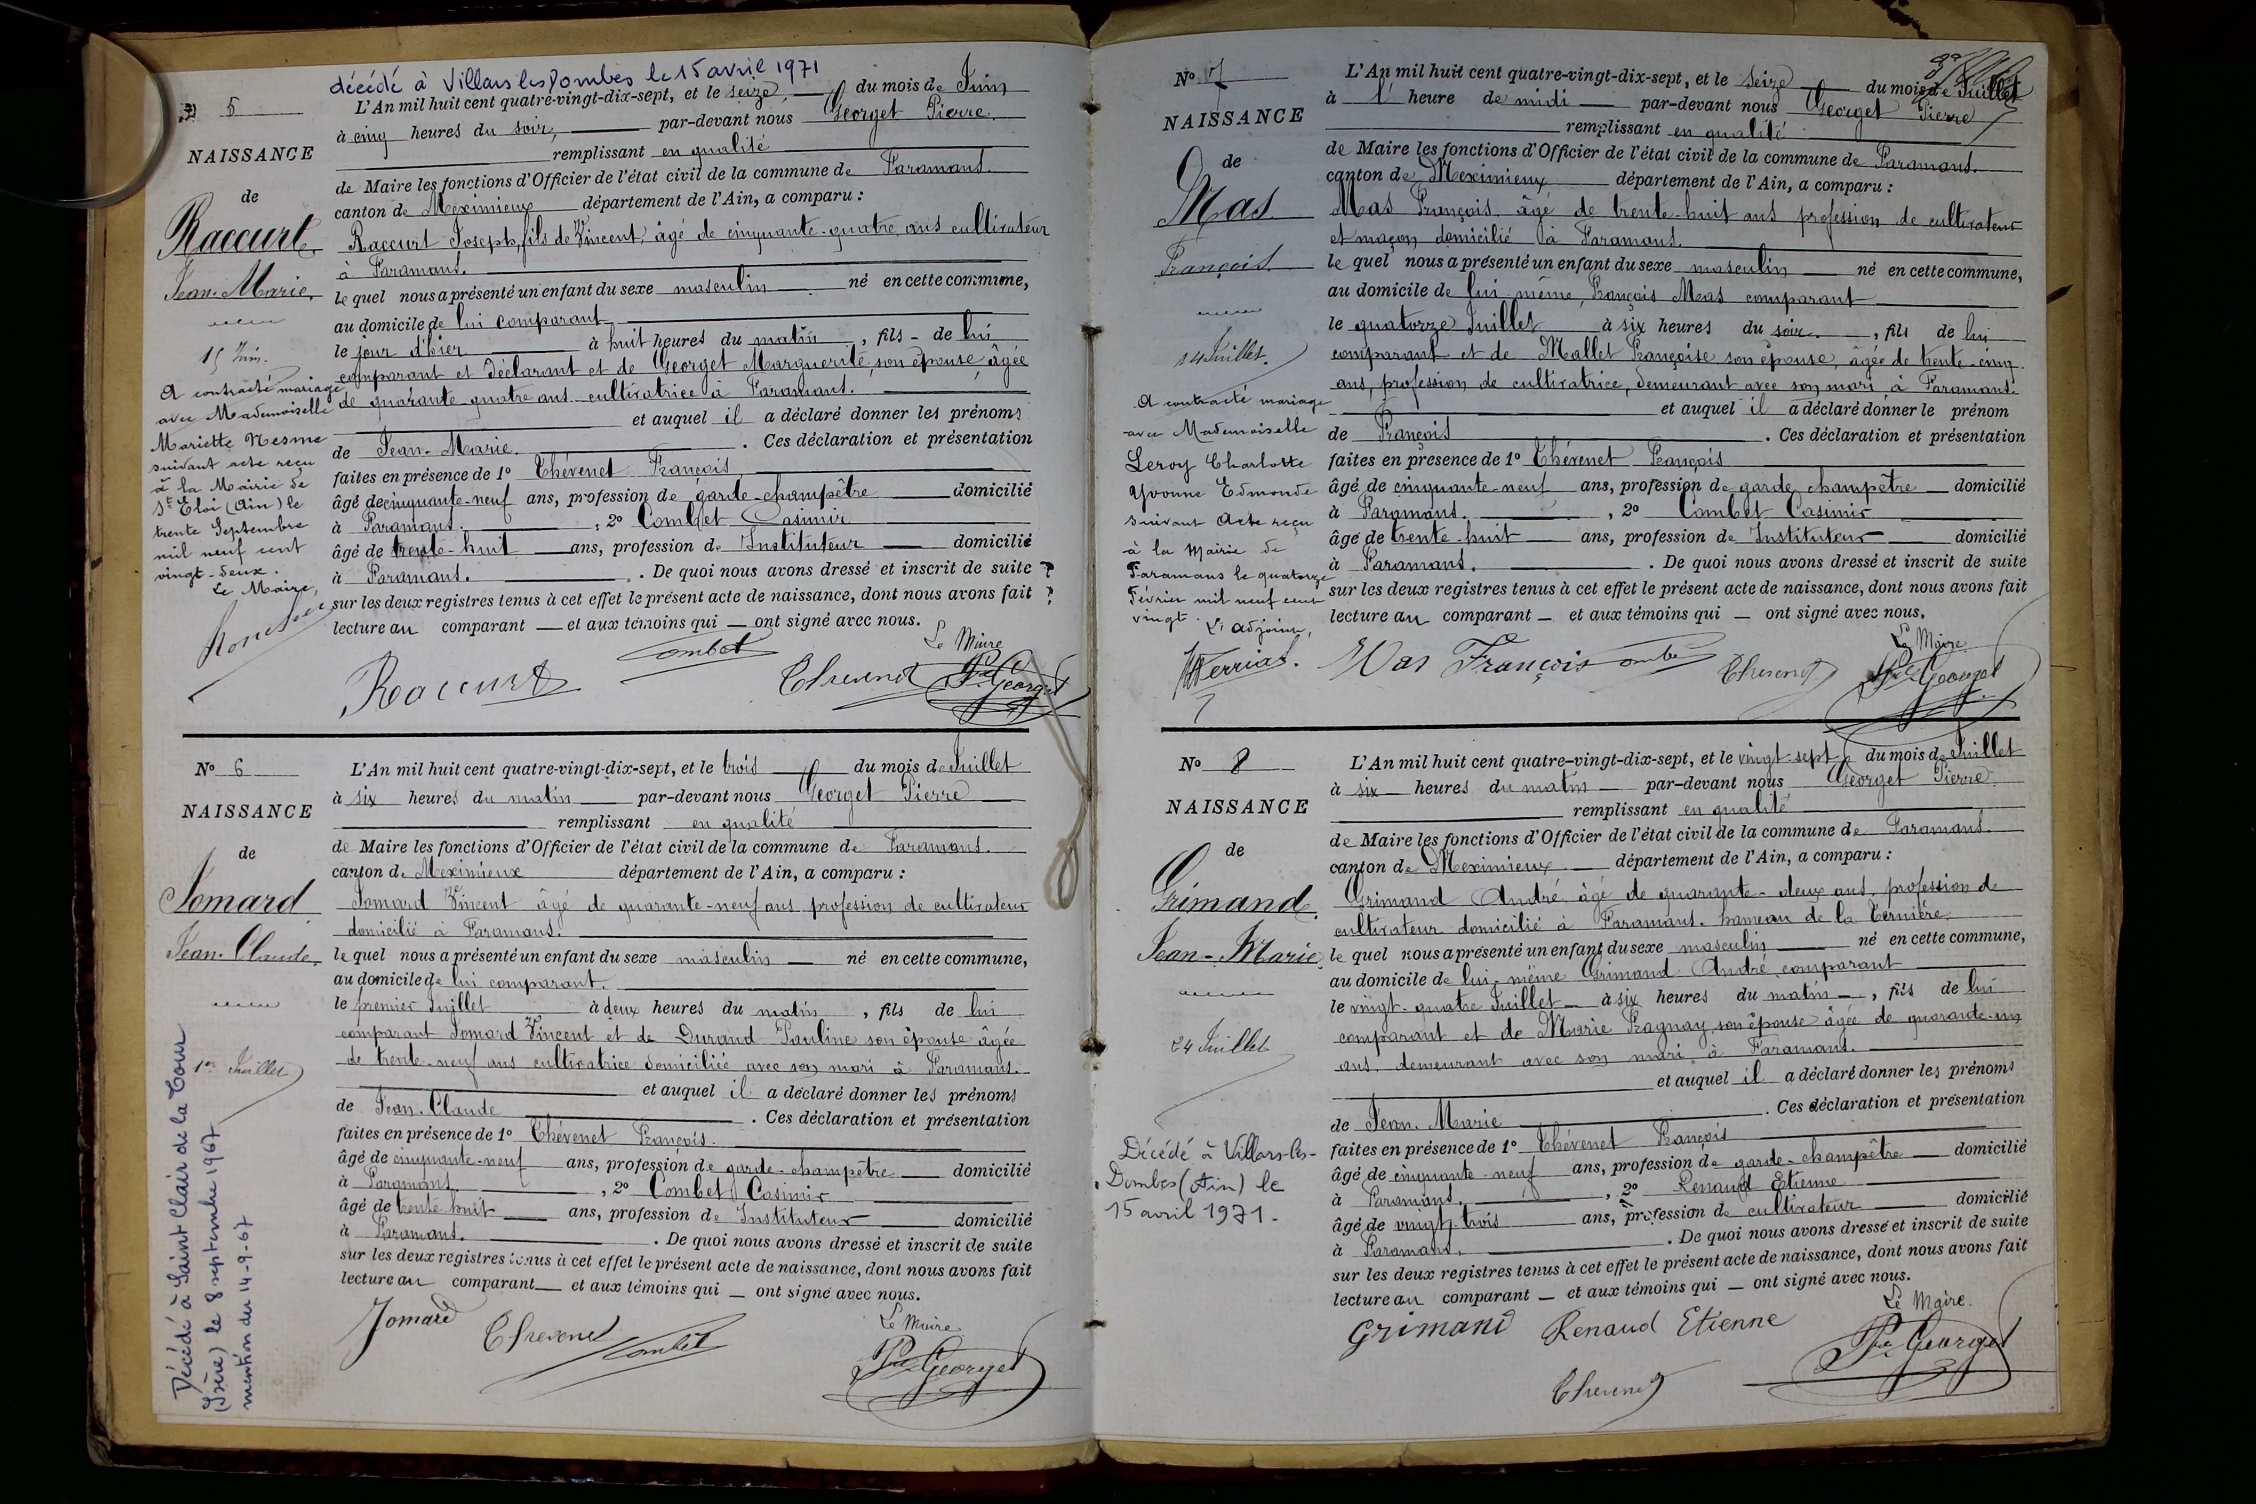 décédé à Villars les Dombes le 15 avril 1971
5
NAISSANCE
de
Raccurt
Jean-Marie.
15 Juin.
A contracté mariage
avec Mademoiselle
Mariette Nesme
suivant acte reçu
à la Mairie de
St Eloi (Ain) le
trente Septembre
mil neuf cent
vingt-deux.
Le Maire,
L'An mil huit cent quatre-vingt-dix-sept, et le seize du mois de Juin
à cinq heures du soir, par-devant nous Georget Pierre.
remplissant en qualité
de Maire les fonctions d'Officier de l'état civil de la commune de Faramans.
canton de Meximieux département de l'Ain, a comparu :
Raccurt Joseph, fils de Vincent, âgé de cinquante-quatre ans cultivateur
à Faramans.
le quel nous a présenté un enfant du sexe masculin né en cette commune,
au domicile de lui comparant
le jour d'hier à huit heures du matin, fils - de lui
comparant et déclarant et de Georget Marguerite, son épouse, âgée
de quarante quatre ans cultivatrice à Faramans.
et auquel il a déclaré donner les prénoms
de Jean-Marie. . Ces déclaration et présentation
faites en présence de 1º Thévenet François
âgé de cinquante-neuf ans, profession de garde-champêtre domicilié
à Faramans. , 2º Combet Casimir
âgé de trente-huit ans, profession de Instituteur domicilié
à Faramans. . De quoi nous avons dressé et inscrit de suite
sur les deux registres tenus à cet effet le présent acte de naissance, dont nous avons fait
lecture au comparant — et aux témoins qui — ont signé avec nous.
Le Maire
Raccurt Combet Thevenet Pre Georget
Nº 6
NAISSANCE
de
Jomard
Jean-Claude.
1er Juillet
Décédé à Saint Clair de la Tour
(Isère) le 8 septembre 1967
mention du 14-9-67
L'An mil huit cent quatre-vingt-dix-sept, et le trois du mois de Juillet
à six heures du matin par-devant nous Georget Pierre
remplissant en qualité
de Maire les fonctions d'Officier de l'état civil de la commune de Faramans.
canton de Meximieux département de l'Ain, a comparu :
Jomard Vincent âgé de quarante-neuf ans profession de cultivateur
domicilié à Faramans.
le quel nous a présenté un enfant du sexe masculin né en cette commune,
au domicile de lui comparant.
le premier Juillet à deux heures du matin, fils de lui
comparant Jomard Vincent et de Durand Pauline son épouse âgée
de trente-neuf ans cultivatrice domiciliée avec son mari à Faramans.
et auquel il a déclaré donner les prénoms
de Jean-Claude . Ces déclaration et présentation
faites en présence de 1º Thévenet François.
âgé de cinquante-neuf ans, profession de garde-champêtre domicilié
à Faramans , 2º Combet Casimir
âgé de trente huit ans, profession de Instituteur domicilié
à Faramans. . De quoi nous avons dressé et inscrit de suite
sur les deux registres tenus à cet effet le présent acte de naissance, dont nous avons fait
lecture au comparant — et aux témoins qui — ont signé avec nous.
Le Maire
Jomard Thevenet Combet Pre Georget
Nº 7
NAISSANCE
de
Mas
François.
14 Juillet.
A contracté mariage
avec Mademoiselle
Leroy Charlotte
Yvonne Edmonde
suivant Acte reçu
à la Mairie de
Faramans le quatorze
Février mil neuf cent
vingt.
L'adjoint,
L'An mil huit cent quatre-vingt-dix-sept, et le seize du mois de Juillet
à l' heure de midi par-devant nous Georget Pierre
remplissant en qualité
de Maire les fonctions d'Officier de l'état civil de la commune de Faramans.
canton de Meximieux département de l'Ain, a comparu :
Mas François âgé de trente-huit ans profession de cultivateur
et maçon domicilié à Faramans.
le quel nous a présenté un enfant du sexe masculin né en cette commune,
au domicile de lui même, François Mas comparant
le quatorze Juillet à six heures du soir, fils de lui
comparant et de Mallet Françoise son épouse, âgée de trente-cinq
ans, profession de cultivatrice, demeurant avec son mari à Faramans.
et auquel il a déclaré donner le prénom
de François . Ces déclaration et présentation
faites en présence de 1º Thévenet François
âgé de cinquante-neuf ans, profession de garde champêtre domicilié
à Faramans. , 2º Combet Casimir
âgé de trente-huit ans, profession de Instituteur domicilié
à Faramans. . De quoi nous avons dressé et inscrit de suite
sur les deux registres tenus à cet effet le présent acte de naissance, dont nous avons fait
lecture au comparant — et aux témoins qui — ont signé avec nous.
Le Maire
Mas François Combet Thevenet Pre Georget
Nº 8
NAISSANCE
de
Grimand
Jean-Marie.
24 Juillet
Décédé à Villars-les-
Dombes (Ain) le
15 avril 1971.
L'An mil huit cent quatre-vingt-dix-sept, et le vingt-sept du mois de Juillet
à six heures du matin par-devant nous Georget Pierre
remplissant en qualité
de Maire les fonctions d'Officier de l'état civil de la commune de Faramans.
canton de Meximieux département de l'Ain, a comparu :
Grimand André âgé de quarante-deux ans profession de
cultivateur domicilié à Faramans. hameau de la Ternière.
le quel nous a présenté un enfant du sexe masculin né en cette commune,
au domicile de lui-même Grimand André comparant
le vingt-quatre Juillet à six heures du matin, fils de lui
comparant et de Marie Fragnay son épouse âgée de quarante-un
ans demeurant avec son mari à Faramans.
et auquel il a déclaré donner les prénoms
de Jean-Marie . Ces déclaration et présentation
faites en présence de 1º Thévenet François
âgé de cinquante-neuf ans, profession de garde-champêtre domicilié
à Faramans. , 2º Renaud Etienne
âgé de vingt-trois ans, profession de cultivateur domicilié
à Faramans. . De quoi nous avons dressé et inscrit de suite
sur les deux registres tenus à cet effet le présent acte de naissance, dont nous avons fait
lecture au comparant — et aux témoins qui — ont signé avec nous.
Le Maire.
Grimand Renaud Etienne Pre Georget
Thevenet